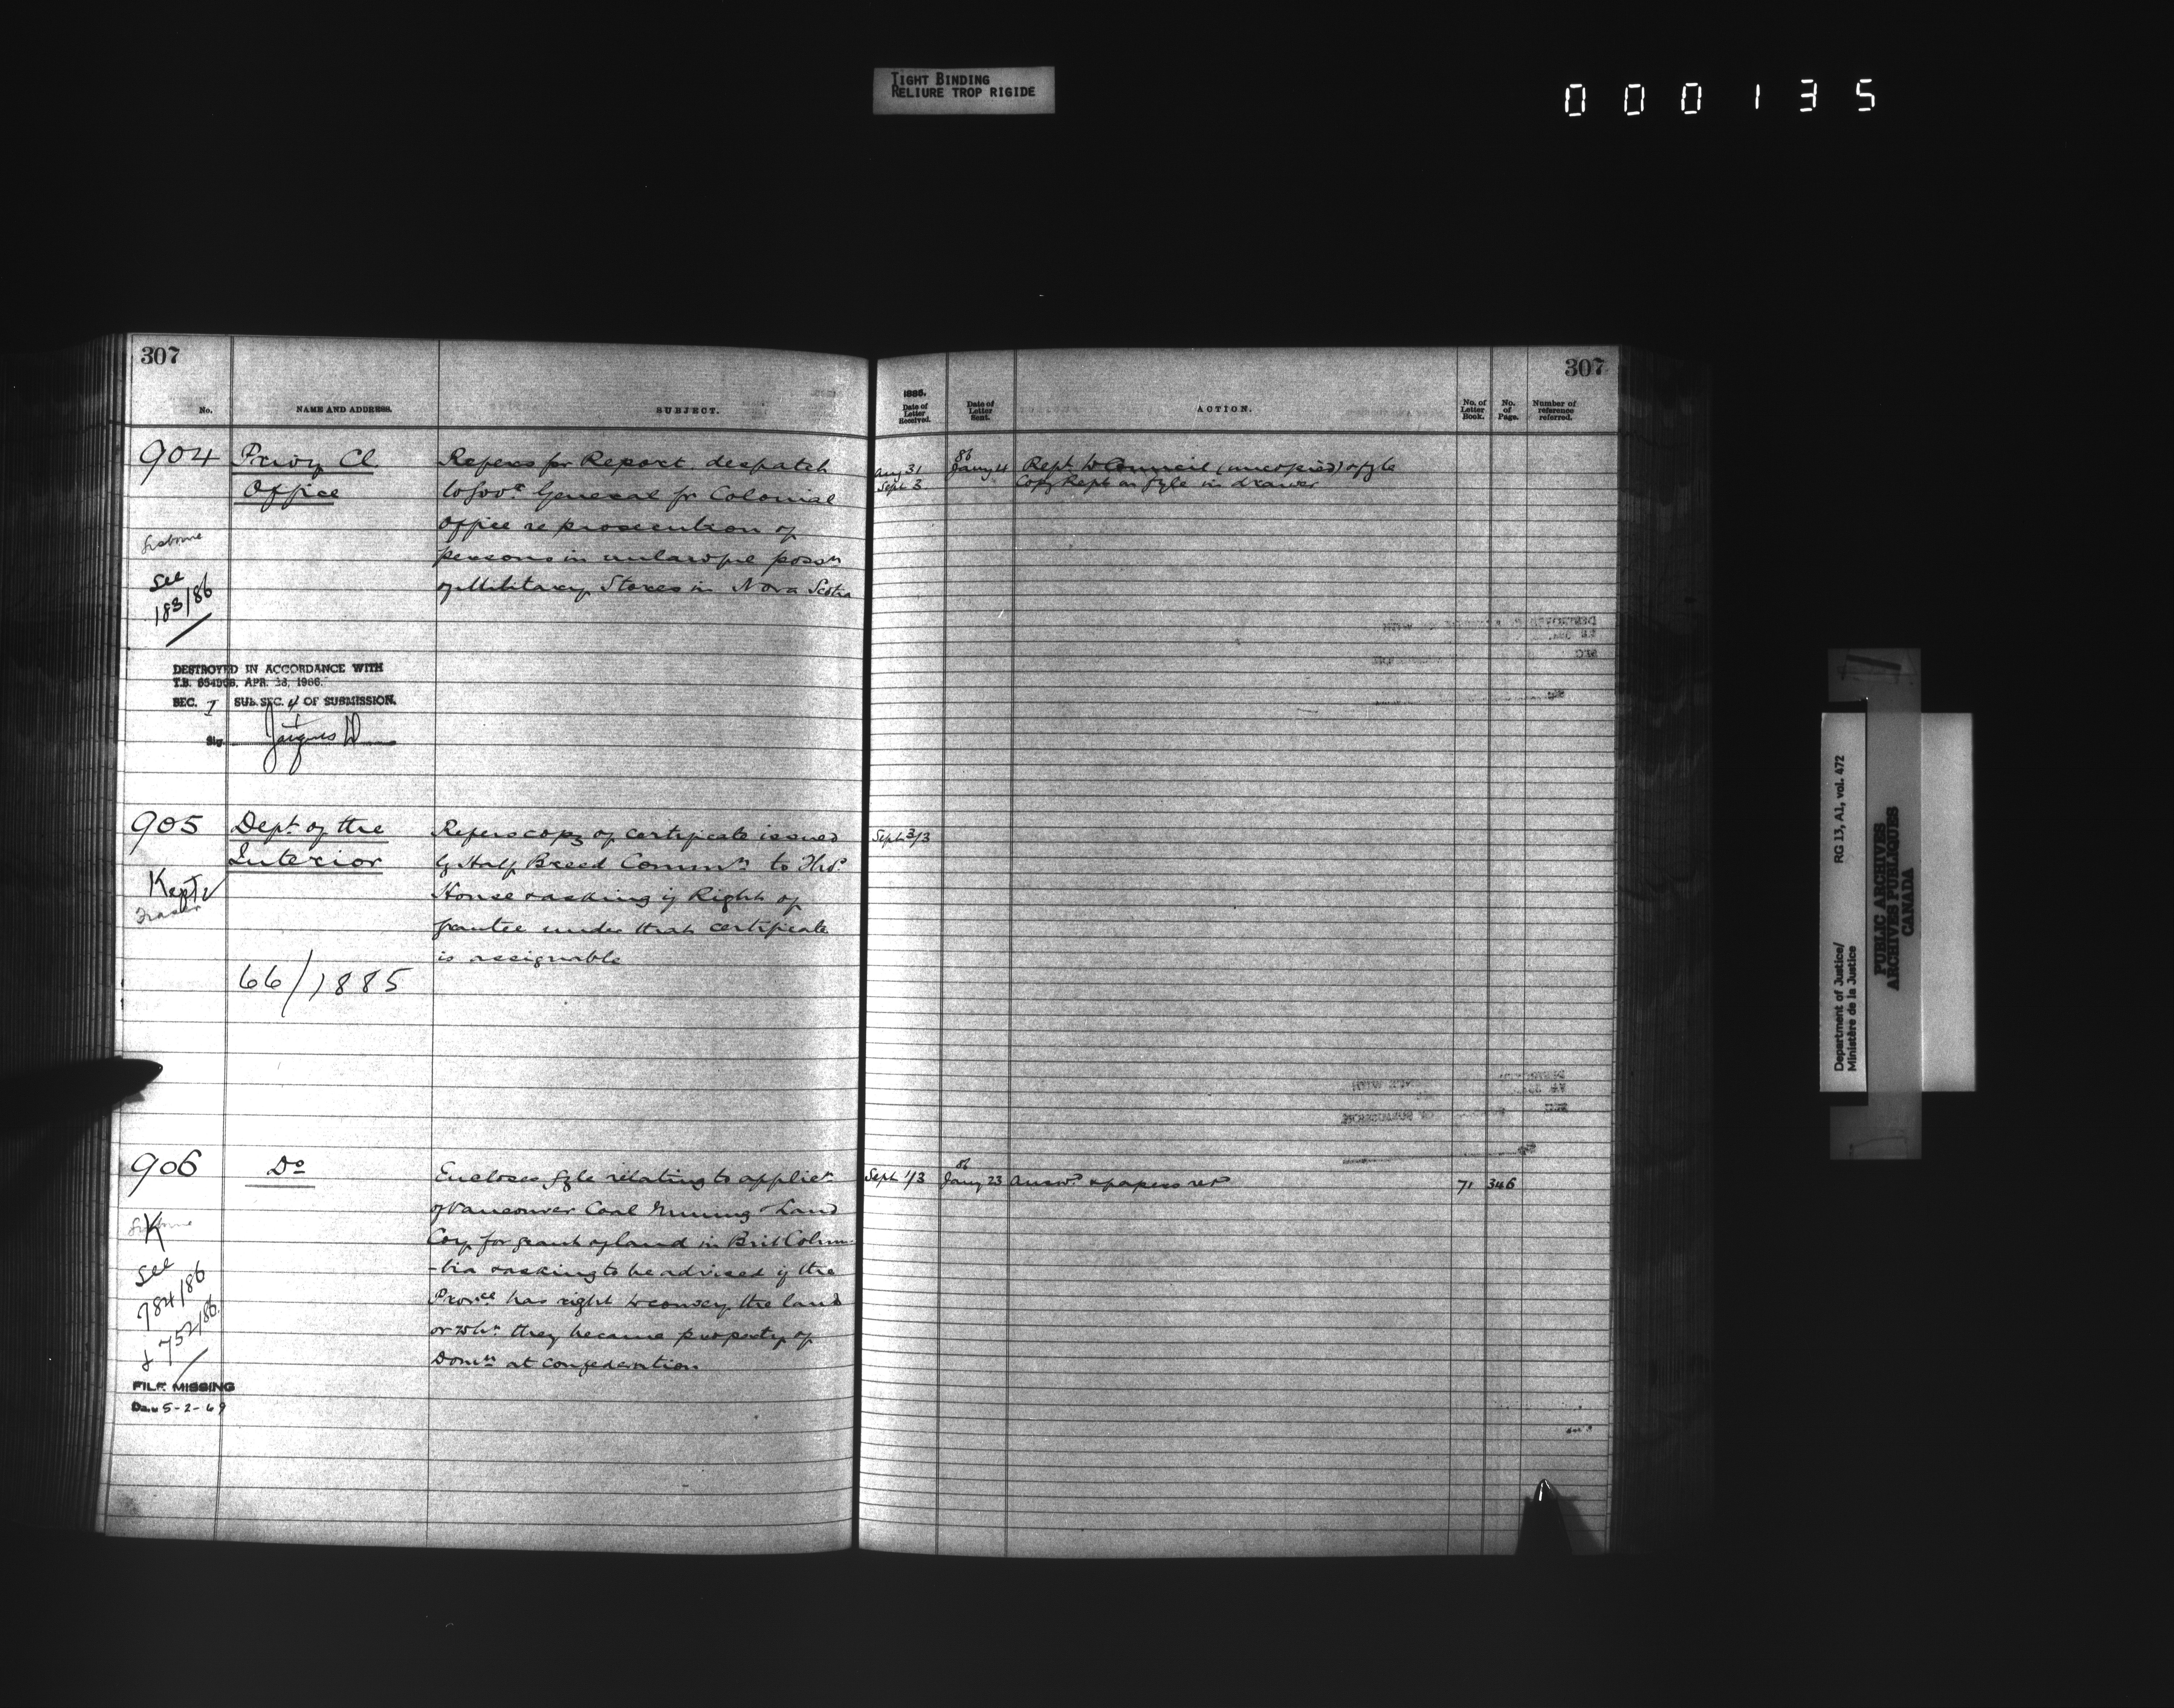 TIGHT BINDING
RELIURE TROP RIGIDE
000135
307
No.
NAME AND ADDRESS.
SUBJECT.
904
Privy Cl
Office
Refers for Report despatch
to Govr General fr Colonial
Office re prosecution of
persons in unlawful possn
of Military Stores in Nova Scotia
See
183/86
DESTROYED IN ACCORDANCE WITH
T.B. APR. 1966.
SEC. I SUB. SEC. 4 OF SUBMISSION.
Sig. Jacques
905
Dept of the
Interior
Kept
Fraser
66/1885
Refers copy of certificate issued
by Half Breed Commn to Thos
House & asking if Right of
grantee under that certificate
is assignable
906
Do
K
See
784/86
& 752/86
FILE MISSING
Date 5-2-69
Encloses fyle relating to applicn
of Vancouver Coal Mining & Land
Coy for grant of land in Brit Colum
-bia & asking to be advised if the
Provce has right to convey the land
or whr they became property of
Domn at confederation
307
1885.
Date of Letter Received.
Date of Letter Sent.
ACTION.
No. of Letter Book.
No. of Page.
Number of reference referred.
Aug 31
Sept 3
86
Jany 4
Rept to Council (unexpired) & fyle
Copy Rept on fyle in drawer
Sept 3/3
Sept 1/3
86
Jany 23
Answd & papers retd
71
346
Department of Justice/
Ministère de la Justice
RG 13, A1, vol. 472
PUBLIC ARCHIVES
ARCHIVES PUBLIQUES
CANADA